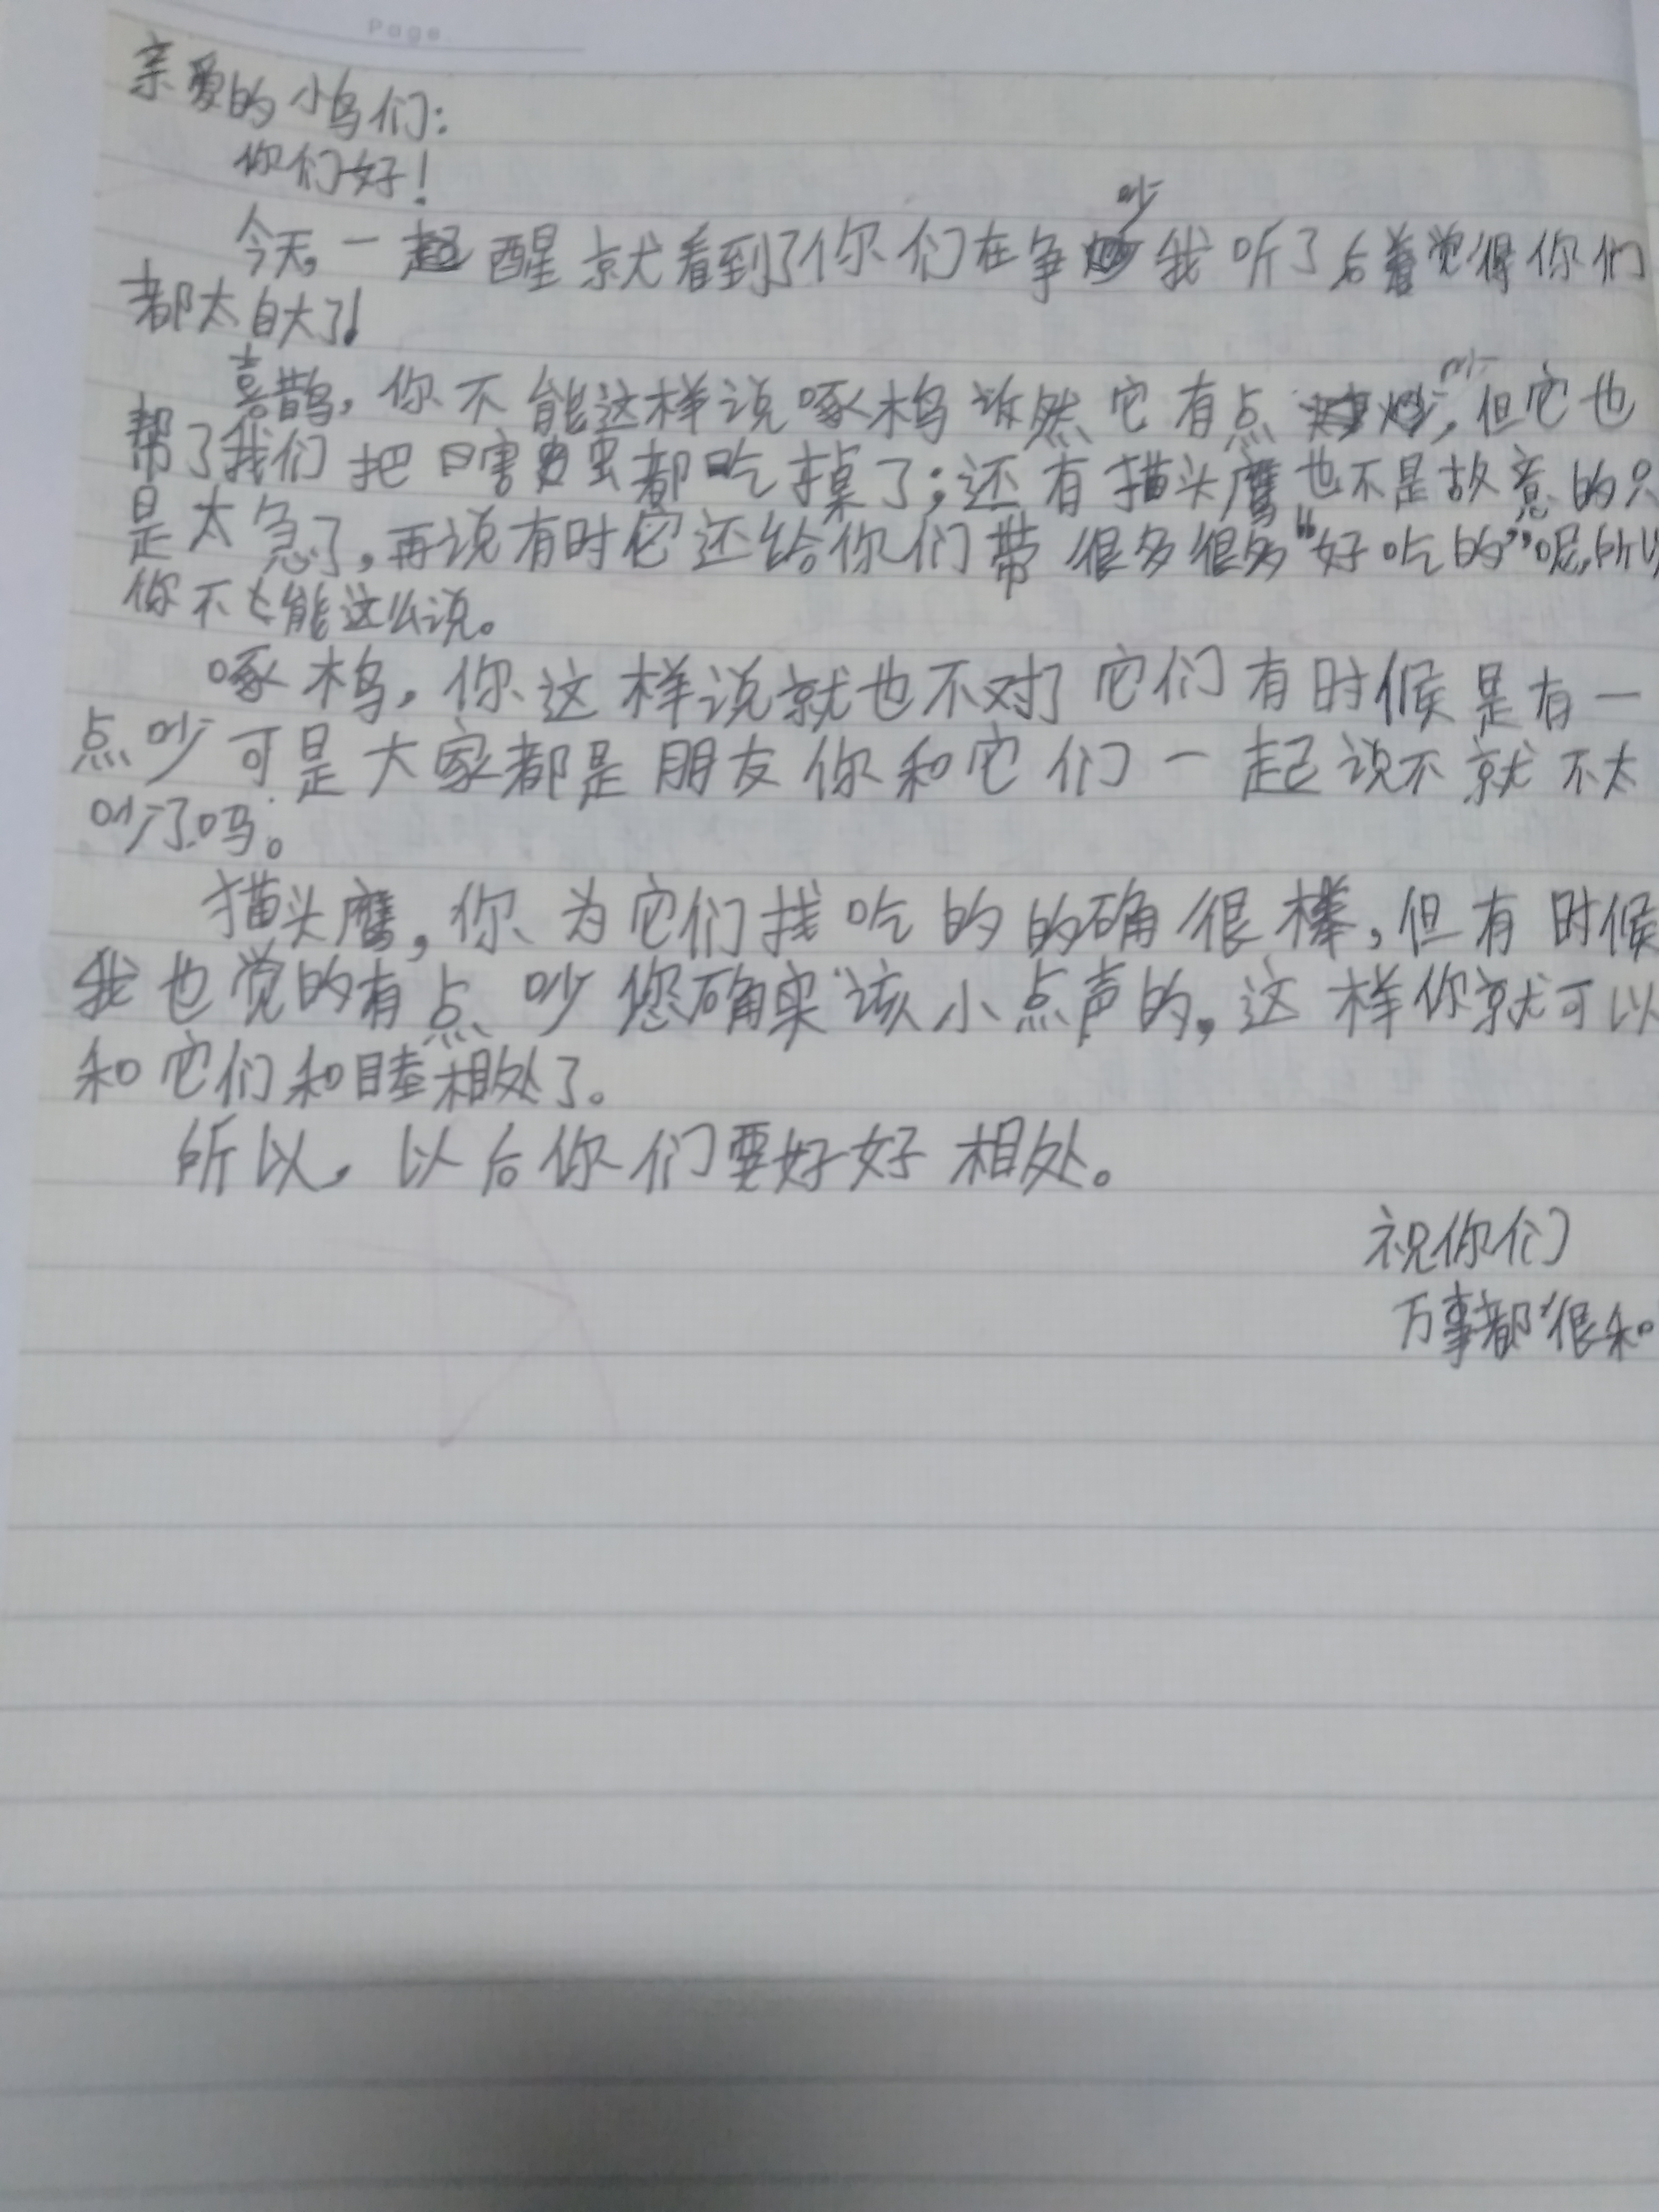 Page
亲爱的小鸟们:
你们好!
今天,一醒就看到了你们在争吵我听了后觉得你们
都太自大了!
喜鹊,你不能这样说啄木鸟 然它有点吵,但它也
帮了我们把害虫都吃掉了;还有猫头鹰也不是故意的只
是太急了,再说有时它还给你们带很多很多“好吃的”呢,所以
你不能这么说。
啄木鸟,你这样说就也不对了它们有时候是有一
点吵可是大家都是朋友你和它们一起说不就不太
吵了吗。
猫头鹰,你为它们找吃的的确很棒,但有时候
我也觉的有点吵您确实该小点声的,这样你就可以
和它们和睦相处了。
所以,以后你们要好好相处。
祝你们
万事都很和